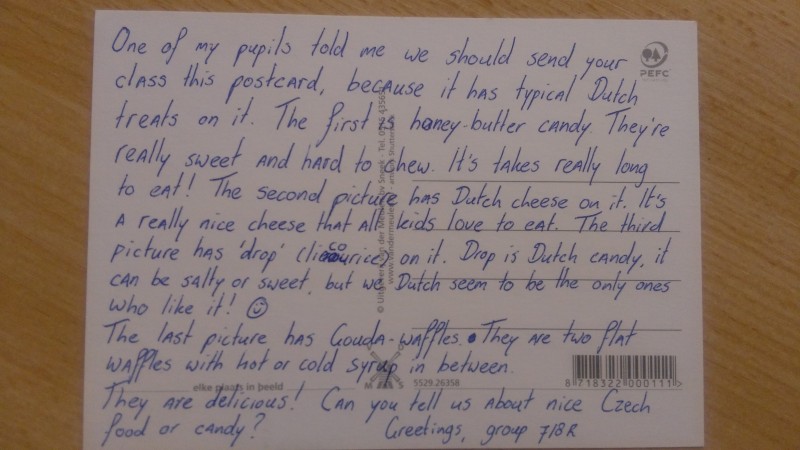 One of my pupils told me we should send your
class this postcard, because it has typical Dutch
treats on it. The first is honey-butter candy. They're
really sweet and hard to chew. It's takes really long
to eat! The second picture has Dutch cheese on it. It's
a really nice cheese that all kids love to eat. The third
picture has 'drop' (licourice) on it. Drop is Dutch candy, it
can be salty or sweet, but we Dutch seem to be the only ones
who like it! ☺
The last picture has Gouda-waffles. They are two flat
waffles with hot or cold syrup in between.
They are delicious! Can you tell us about nice Czech
food or candy? Greetings, group 7/8R
PEFC
elke plaats in beeld
5529.26358
8 718322 000111